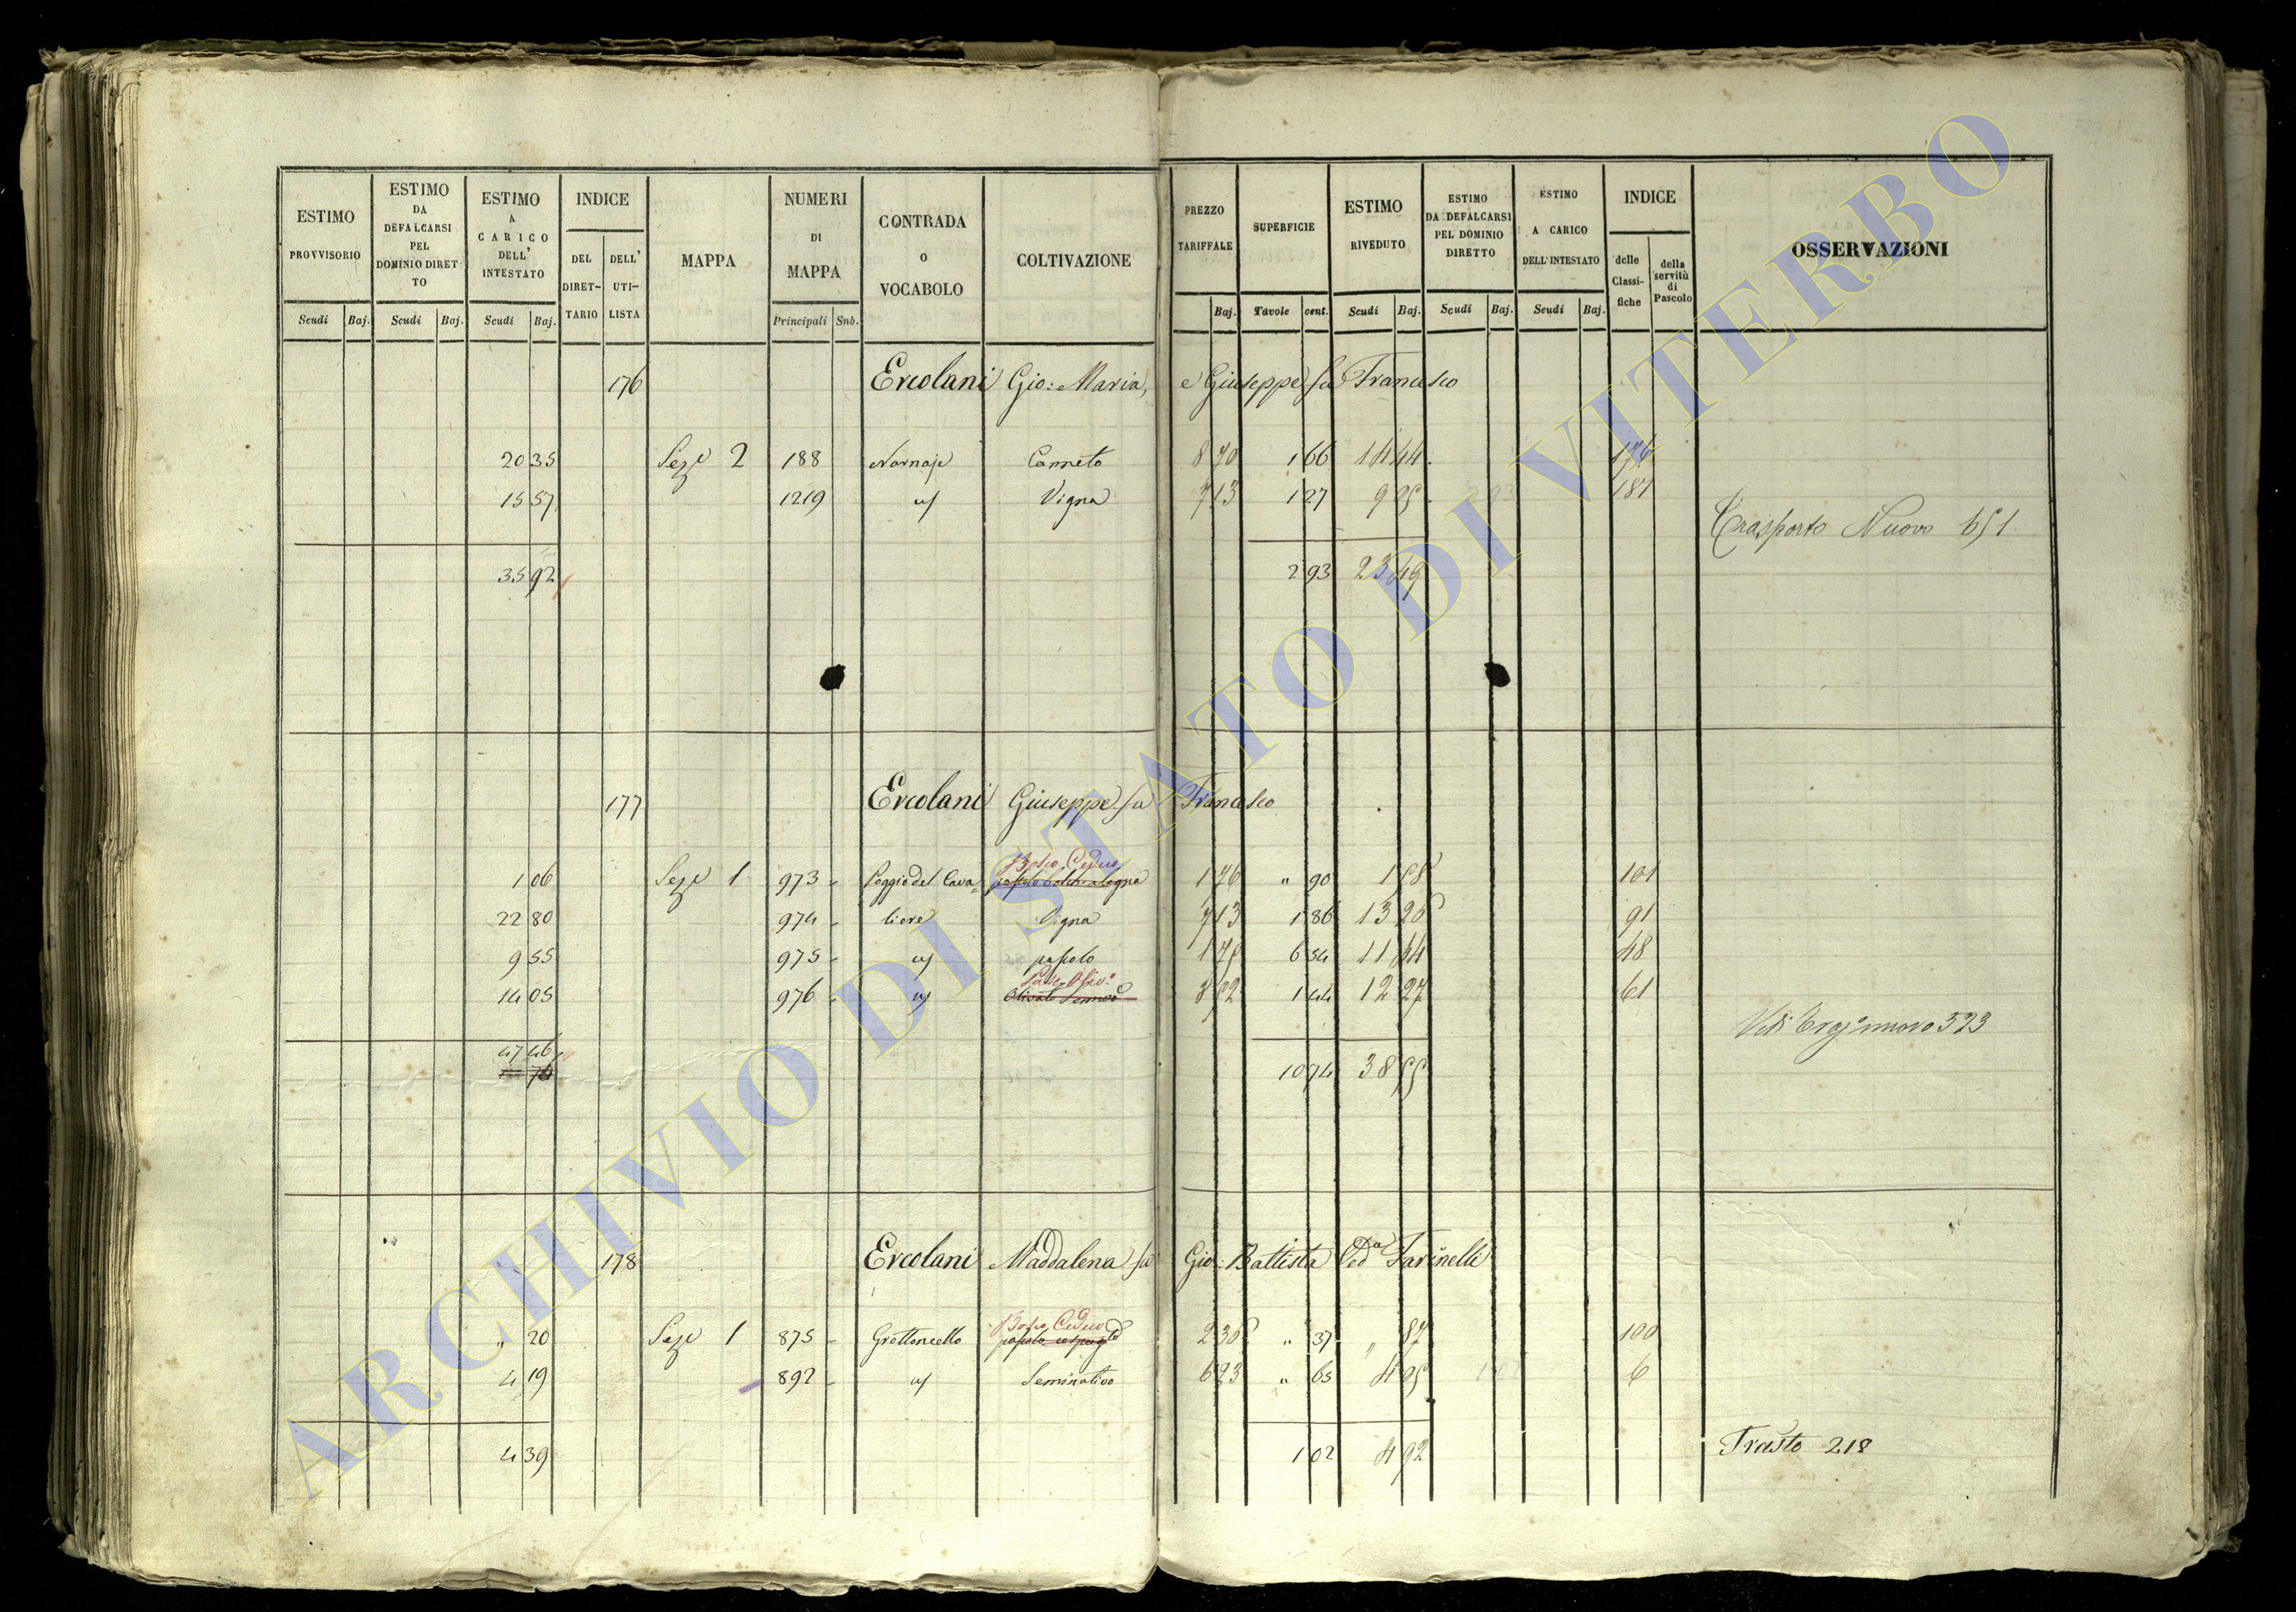 ESTIMO PROVVISORIO Scudi Baj.
ESTIMO DA DEFALCARSI PEL DOMINIO DIRETTO Scudi Baj.
ESTIMO A CARICO DELL' INTESTATO Scudi Baj.
INDICE DEL DIRET-TARIO DELL' UTI-LISTA
MAPPA
NUMERI DI MAPPA Principali Sub.
CONTRADA O VOCABOLO
COLTIVAZIONE
PREZZO TARIFFALE Baj.
SUPERFICIE Tavole cent.
ESTIMO RIVEDUTO Scudi Baj.
ESTIMO DA DEFALCARSI PEL DOMINIO DIRETTO Scudi Baj.
ESTIMO A CARICO DELL'INTESTATO Scudi Baj.
INDICE delle Classi-fiche della servitù di Pascolo
OSSERVAZIONI
176 Ercolani Gio: Maria, e Giuseppe fu Francesco
20 35 Seze 2 188 Canneto 8 70 1 66 14 44
15 57 1219 Vigna 7 13 1 27 9 05 187
Trasporto Nuovo 651
35 92 2 93 23 49
177 Ercolani Giuseppe fu Francesco
Bosco Ceduo
1 06 Seze 1 973 Poggio del Cava= 1 76 " 90 1 58 101
22 80 974 liere Vigna 7 13 1 86 13 26 91
9 55 975 pascolo 1 75 6 54 11 44 48
14 05 976 Olivato 8 52 1 44 12 27 61
nuovo 523
47 46 10 74 38 55
178 Ercolani Maddalena fu Gio: Battista Ved.a Farinelli
Bosco Ceduo
" 20 Seze 1 875 Grottoncello pascolo 2 36 " 37 " 87 100
4 19 892 Seminativo 6 23 " 65 4 05 6
4 39 1 02 4 92
Trasto 218
ARCHIVIO DI STATO DI VITERBO